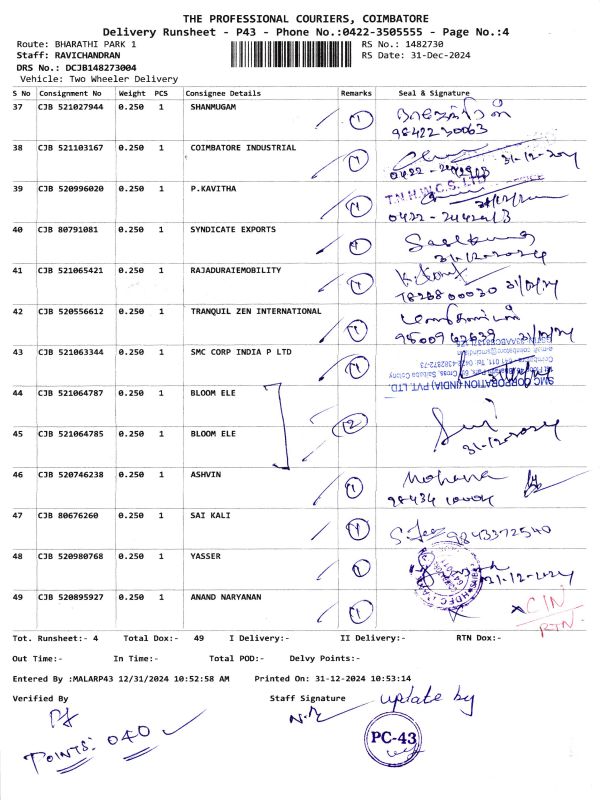 THE PROFESSIONAL COURIERS, COIMBATORE
Delivery Runsheet - P43 - Phone No.:0422-3505555 - Page No.:4
Route: BHARATHI PARK 1 RS No.: 1482730
Staff: RAVICHANDRAN RS Date: 31-Dec-2024
DRS No.: DCJB148273004
Vehicle: Two Wheeler Delivery
S No Consignment No Weight PCS Consignee Details Remarks Seal & Signature
37 CJB 521027944 0.250 1 SHANMUGAM 1
98422 30063
38 CJB 521103167 0.250 1 COIMBATORE INDUSTRIAL 1 31-12-2024
39 CJB 520996020 0.250 1 P.KAVITHA 1 T.N.H.W.C.S. LTD
40 CJB 80791081 0.250 1 SYNDICATE EXPORTS 1
31-12-2024
41 CJB 521065421 0.250 1 RAJADURAIEMOBILITY 1
42 CJB 520556612 0.250 1 TRANQUIL ZEN INTERNATIONAL 1
43 CJB 521063344 0.250 1 SMC CORP INDIA P LTD 1
SMC CORPORATION (INDIA) PVT. LTD.
44 CJB 521064787 0.250 1 BLOOM ELE
2
45 CJB 521064785 0.250 1 BLOOM ELE
31-12-2024
46 CJB 520746238 0.250 1 ASHVIN 1 Mohana
98434 10004
47 CJB 80676260 0.250 1 SAI KALI 1 9843372540
48 CJB 520980768 0.250 1 YASSER 1
31-12-2024
49 CJB 520895927 0.250 1 ANAND NARYANAN 1 CIN
RTN
Tot. Runsheet:- 4 Total Dox:- 49 I Delivery:- II Delivery:- RTN Dox:-
Out Time:- In Time:- Total POD:- Delvy Points:-
Entered By :MALARP43 12/31/2024 10:52:58 AM Printed On: 31-12-2024 10:53:14
Verified By Staff Signature update by
POINTS: 040
PC-43